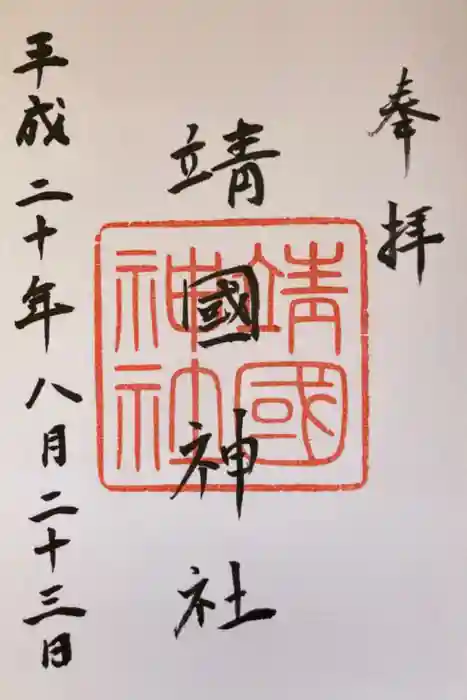 奉拝
靖國神社
靖國神社
平成二十年八月二十三日